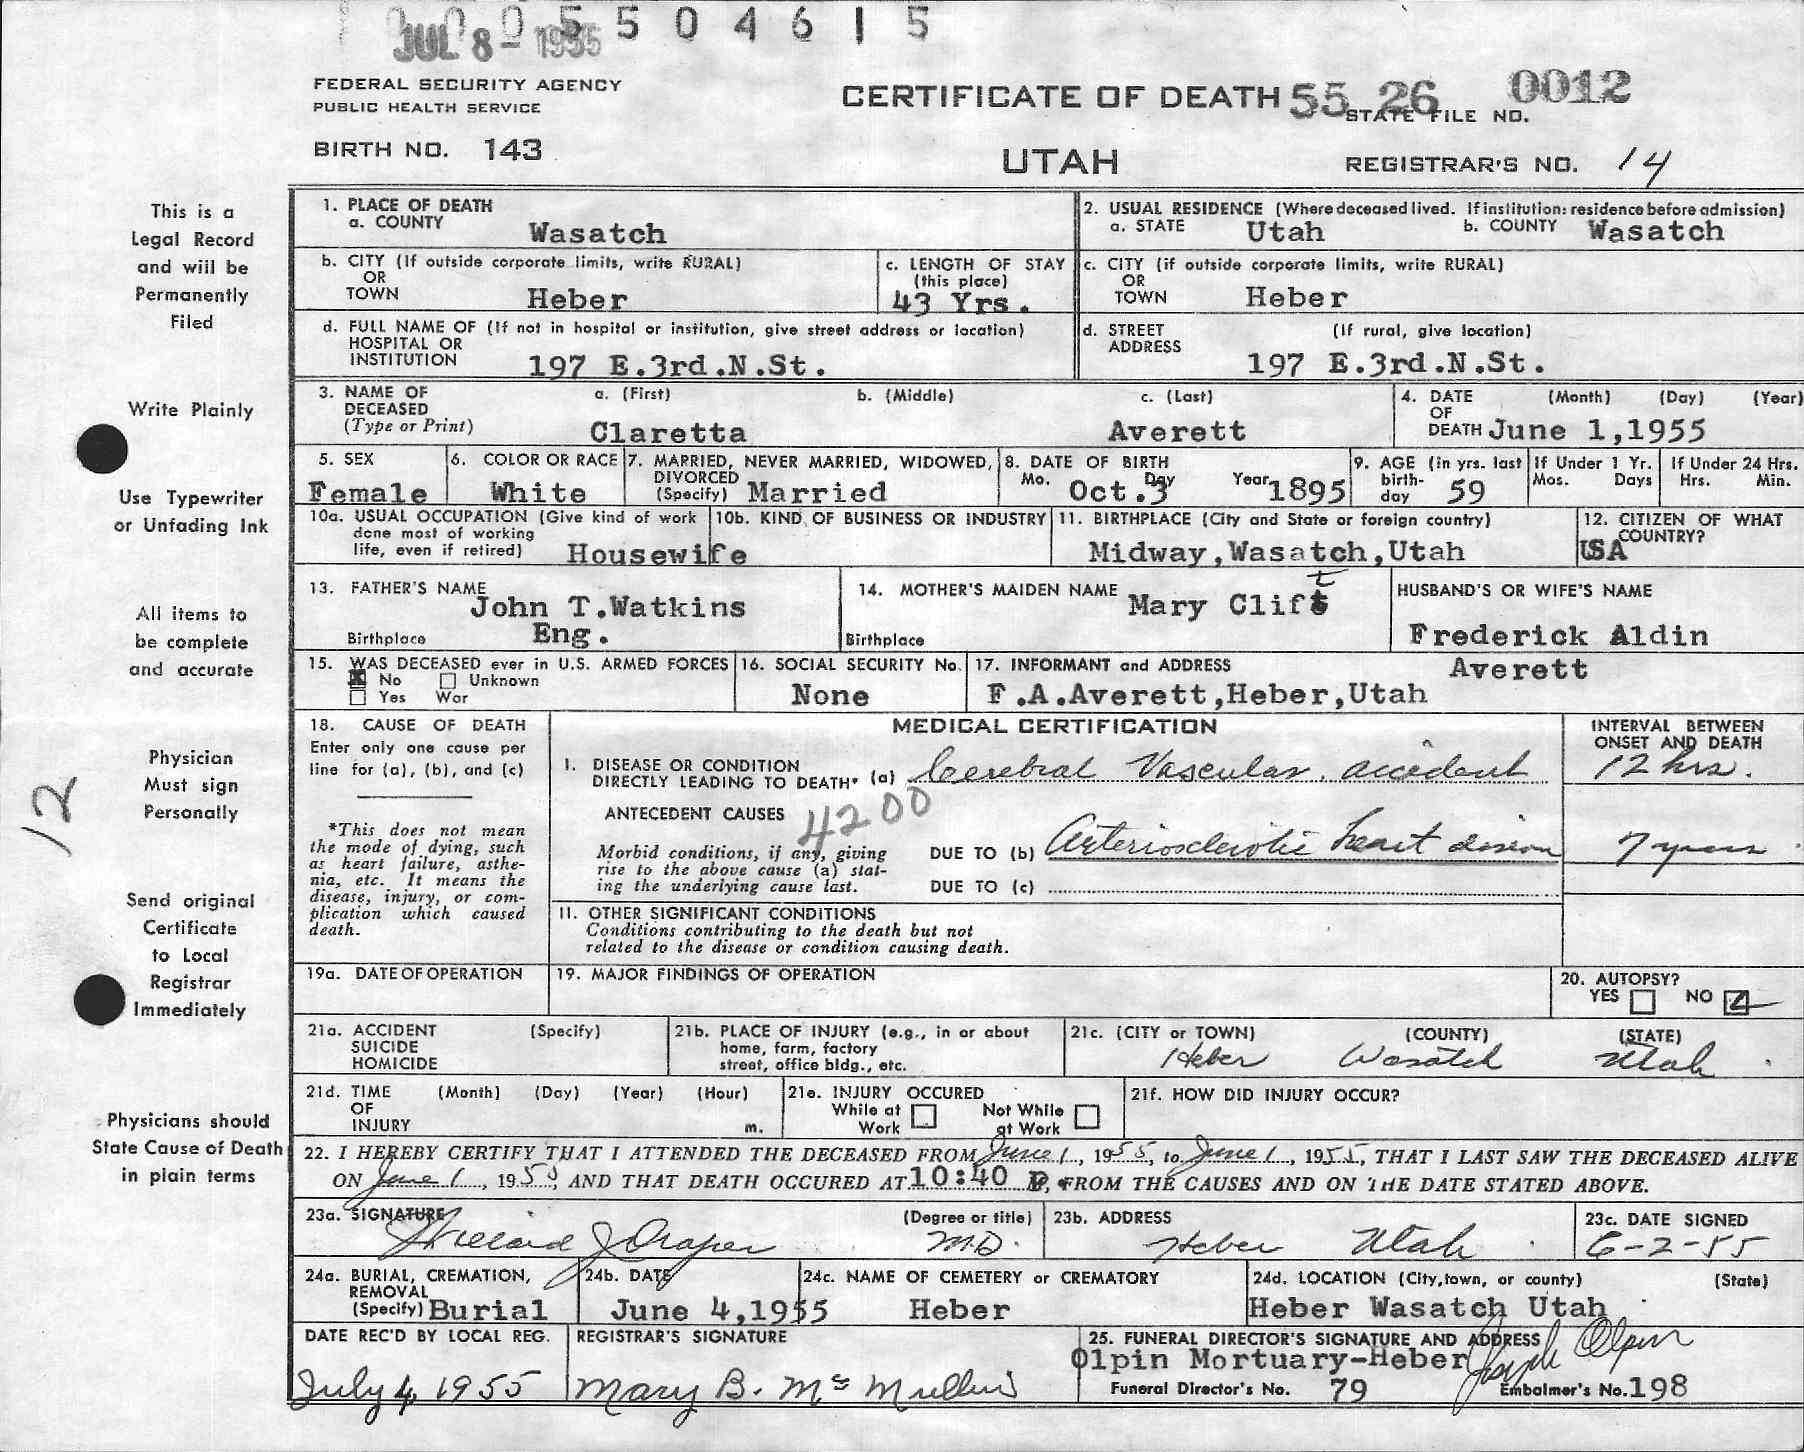 JUL 8 - 1955
5 5 0 4 6 1 5
FEDERAL SECURITY AGENCY
PUBLIC HEALTH SERVICE
CERTIFICATE OF DEATH 55 26 0012
STATE FILE NO.
BIRTH NO. 143
UTAH
REGISTRAR'S NO. 14
This is a
Legal Record
and will be
Permanently
Filed
Write Plainly
Use Typewriter
or Unfading Ink
All items to
be complete
and accurate
Physician
Must sign
Personally
12
Send original
Certificate
to Local
Registrar
Immediately
Physicians should
State Cause of Death
in plain terms
1. PLACE OF DEATH
a. COUNTY Wasatch
2. USUAL RESIDENCE (Where deceased lived. If institution: residence before admission)
a. STATE Utah b. COUNTY Wasatch
b. CITY (If outside corporate limits, write RURAL)
OR
TOWN Heber
c. LENGTH OF STAY
(this place)
43 Yrs.
c. CITY (if outside corporate limits, write RURAL)
OR
TOWN Heber
d. FULL NAME OF (If not in hospital or institution, give street address or location)
HOSPITAL OR
INSTITUTION 197 E.3rd.N.St.
d. STREET (If rural, give location)
ADDRESS
197 E.3rd.N.St.
3. NAME OF a. (First) b. (Middle) c. (Last)
DECEASED
(Type or Print) Claretta Averett
4. DATE (Month) (Day) (Year)
OF
DEATH June 1,1955
5. SEX
Female
6. COLOR OR RACE
White
7. MARRIED, NEVER MARRIED, WIDOWED,
DIVORCED
(Specify) Married
8. DATE OF BIRTH
Mo. Day Year
Oct.3 1895
9. AGE (in yrs. last
birth-
day 59
If Under 1 Yr.
Mos. Days
If Under 24 Hrs.
Hrs. Min.
10a. USUAL OCCUPATION (Give kind of work
done most of working
life, even if retired) Housewife
10b. KIND OF BUSINESS OR INDUSTRY
11. BIRTHPLACE (City and State or foreign country)
Midway,Wasatch,Utah
12. CITIZEN OF WHAT
COUNTRY?
USA
13. FATHER'S NAME
John T.Watkins
Birthplace Eng.
14. MOTHER'S MAIDEN NAME
Mary Clift
Birthplace
HUSBAND'S OR WIFE'S NAME
Frederick Aldin
Averett
15. WAS DECEASED ever in U.S. ARMED FORCES
X No Unknown
Yes War
16. SOCIAL SECURITY No.
None
17. INFORMANT and ADDRESS
F.A.Averett,Heber,Utah
18. CAUSE OF DEATH
Enter only one cause per
line for (a), (b), and (c)
*This does not mean
the mode of dying, such
as heart failure, asthe-
nia, etc. It means the
disease, injury, or com-
plication which caused
death.
MEDICAL CERTIFICATION
INTERVAL BETWEEN
ONSET AND DEATH
I. DISEASE OR CONDITION
DIRECTLY LEADING TO DEATH* (a) Cerebral Vascular accident 12 hrs.
ANTECEDENT CAUSES 4200
Morbid conditions, if any, giving
rise to the above cause (a) stat-
ing the underlying cause last.
DUE TO (b) Arteriosclerotic heart disease 7 years
DUE TO (c)
II. OTHER SIGNIFICANT CONDITIONS
Conditions contributing to the death but not
related to the disease or condition causing death.
19a. DATE OF OPERATION
19. MAJOR FINDINGS OF OPERATION
20. AUTOPSY?
YES NO
21a. ACCIDENT (Specify)
SUICIDE
HOMICIDE
21b. PLACE OF INJURY (e.g., in or about
home, farm, factory
street, office bldg., etc.
21c. (CITY or TOWN) (COUNTY) (STATE)
Heber Wasatch Utah
21d. TIME (Month) (Day) (Year) (Hour)
OF
INJURY m.
21e. INJURY OCCURED
While at Not While
Work at Work
21f. HOW DID INJURY OCCUR?
22. I HEREBY CERTIFY THAT I ATTENDED THE DECEASED FROM June 1, 1955, to June 1, 1955, THAT I LAST SAW THE DECEASED ALIVE
ON June 1, 1955, AND THAT DEATH OCCURED AT 10:40 P, FROM THE CAUSES AND ON THE DATE STATED ABOVE.
23a. SIGNATURE (Degree or title)
Willard J Draper M.D.
23b. ADDRESS
Heber Utah
23c. DATE SIGNED
6-2-55
24a. BURIAL, CREMATION,
REMOVAL
(Specify) Burial
24b. DATE
June 4,1955
24c. NAME OF CEMETERY or CREMATORY
Heber
24d. LOCATION (City,town, or county) (State)
Heber Wasatch Utah
DATE REC'D BY LOCAL REG.
July 4, 1955
REGISTRAR'S SIGNATURE
Mary B. McMullin
25. FUNERAL DIRECTOR'S SIGNATURE AND ADDRESS
Olpin Mortuary-Heber Joseph Olpin
Funeral Director's No. 79 Embalmer's No. 198